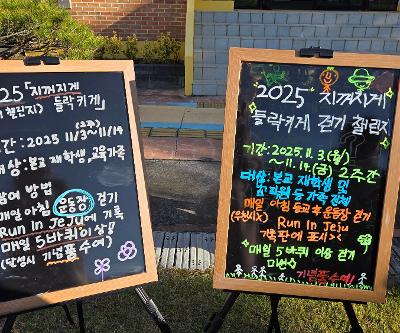 25 「지꺼지게
챌린지〉 들락키게」
간 : 2025 11/3~11/14
(2주)
상: 본교 재학생, 교육가족
여 방법
매일 아침 운동장 걷기
Run In Jeju에 기록
매일 5바퀴 이상
(달성시 기념품 수여)
2025 지꺼지게
들락키게 걷기 챌린지
기간: 2025. 11. 3.(월)
~ 11. 14.(금) 2주간
대상: 본교 재학생 및
교직원 등 가족 전체
매일 아침 등교 후 운동장 걷기
(우천시X) Run In Jeju
기록판에 표시><
매일 5바퀴 이상 걷기
미션
기념품수여!